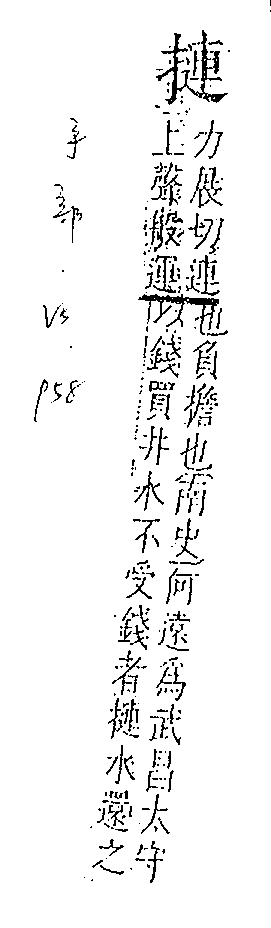 摙
力展切連上聲搬運也負擔也南史何遠爲武昌太守
以錢買井水不受錢者摙水還之
手部.15.
P58